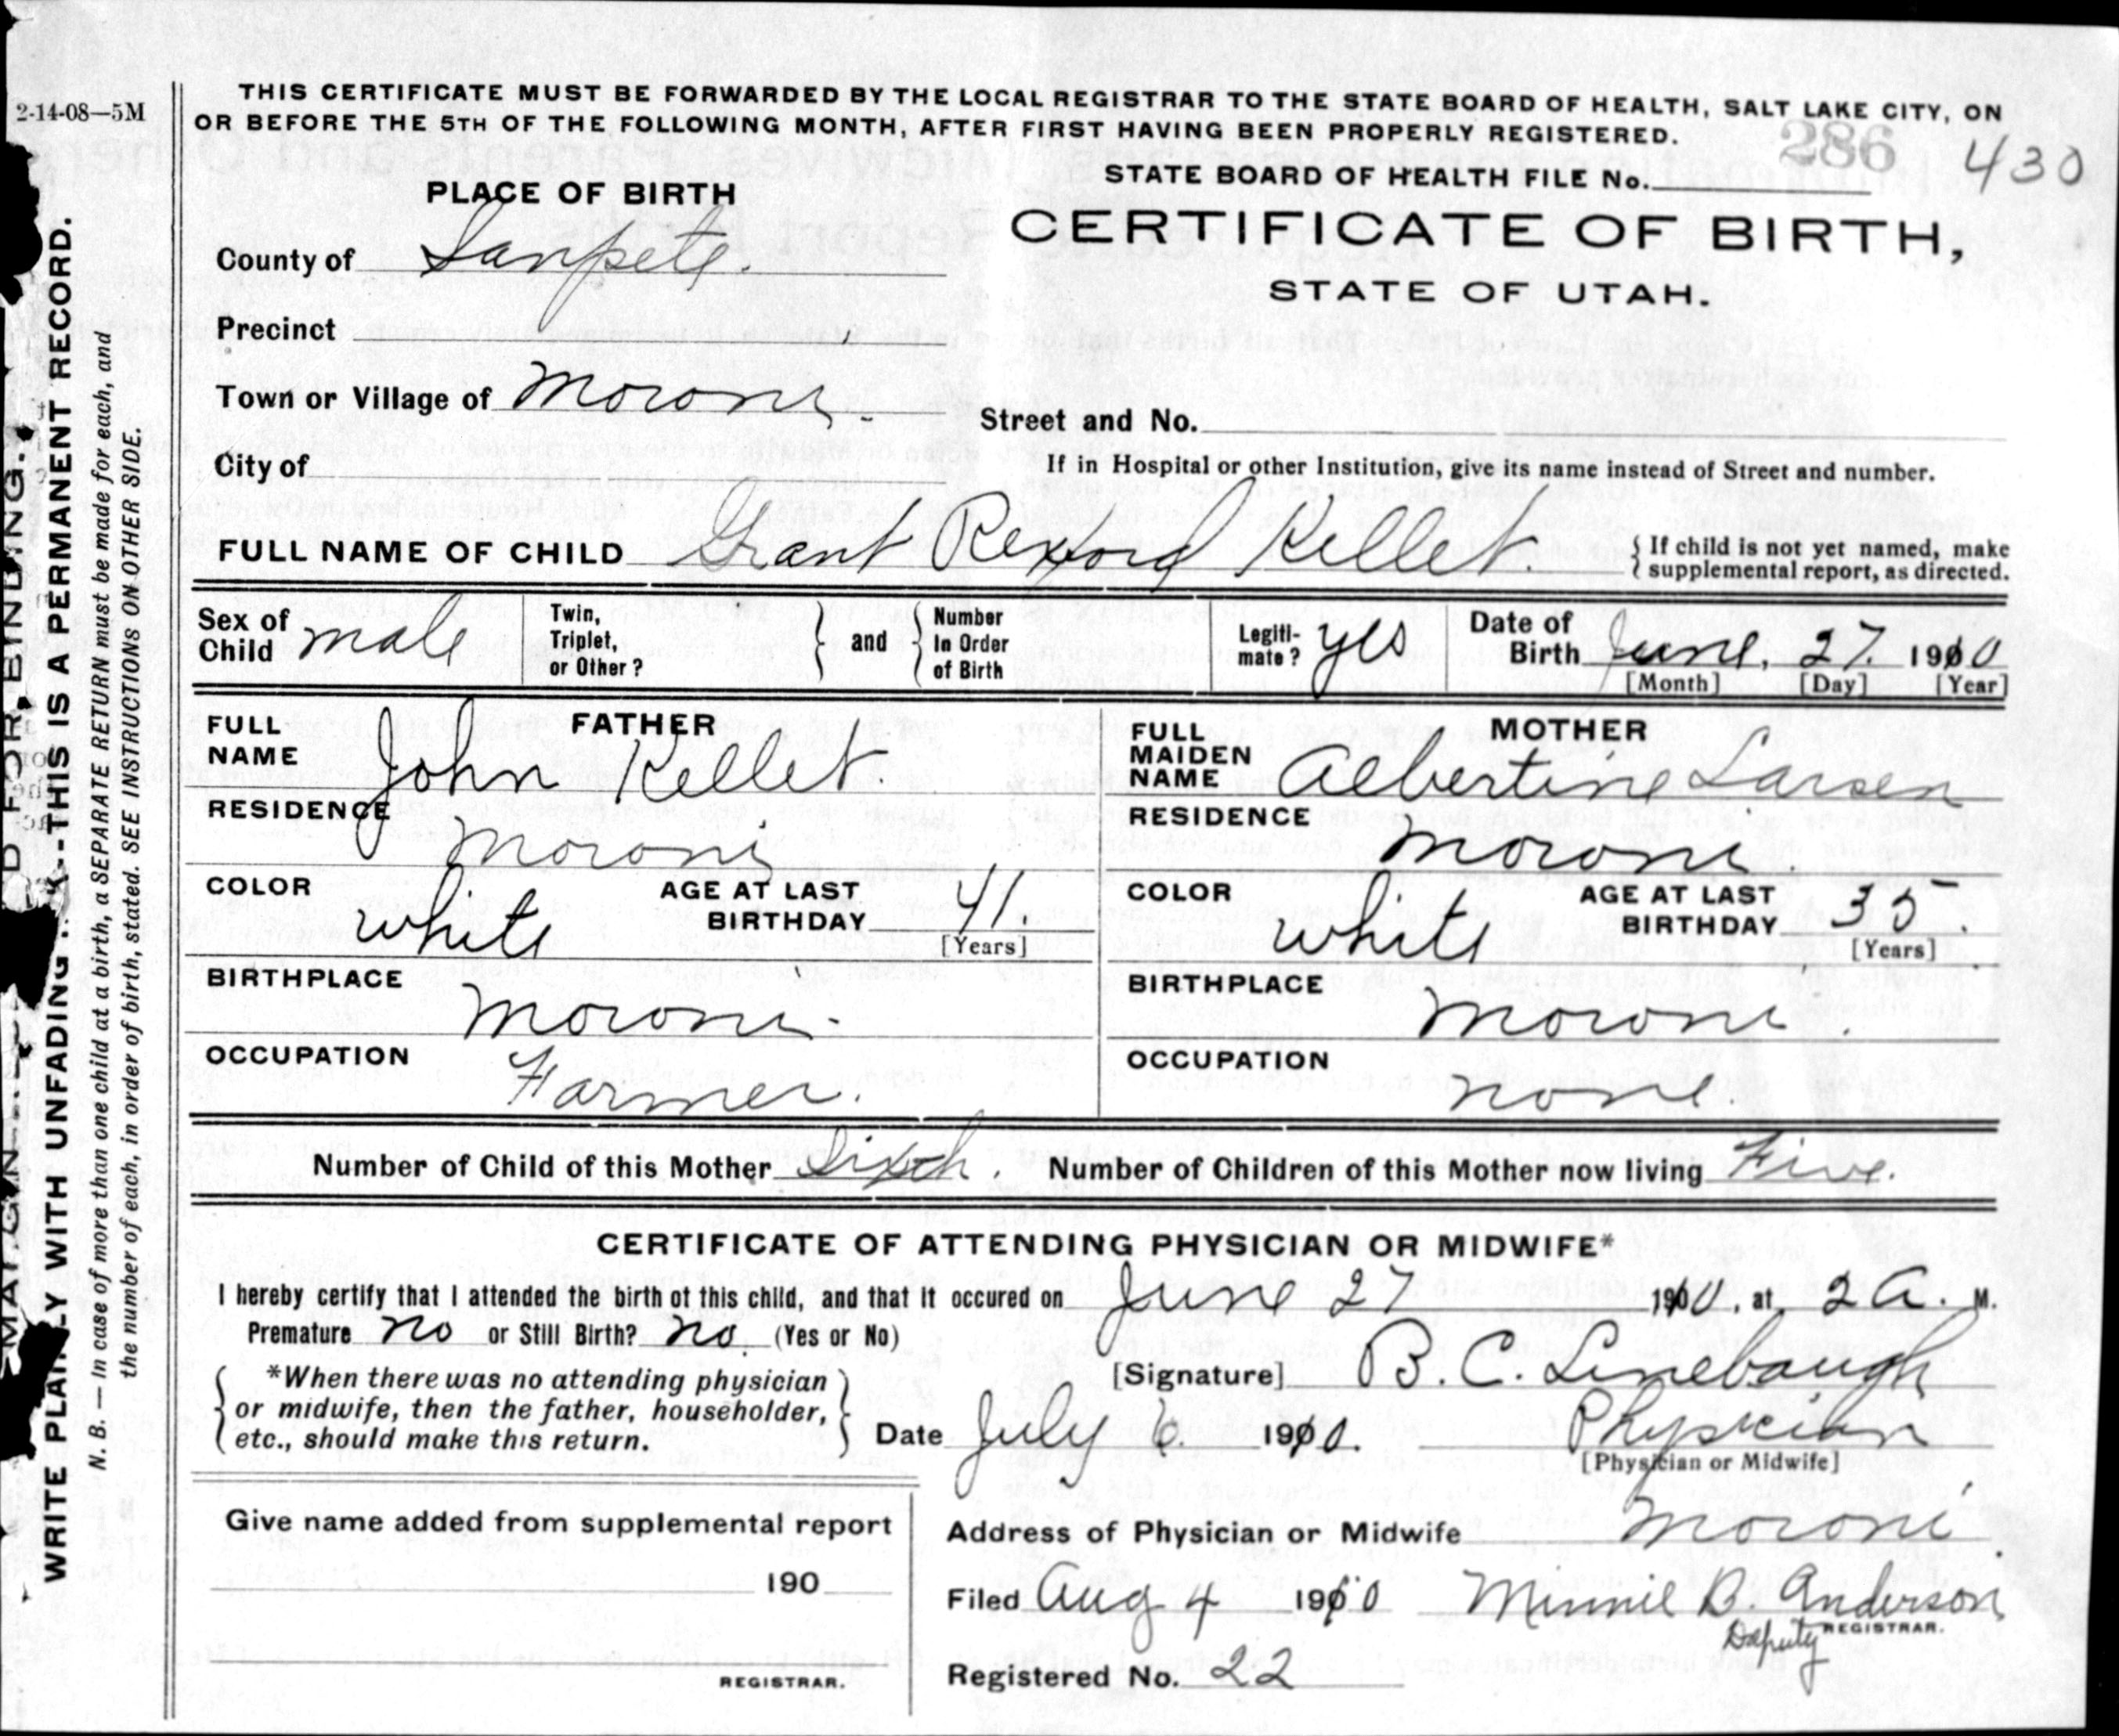 2-14-08—5M
THIS CERTIFICATE MUST BE FORWARDED BY THE LOCAL REGISTRAR TO THE STATE BOARD OF HEALTH, SALT LAKE CITY, ON
OR BEFORE THE 5TH OF THE FOLLOWING MONTH, AFTER FIRST HAVING BEEN PROPERLY REGISTERED.
286 430
STATE BOARD OF HEALTH FILE No.
PLACE OF BIRTH
CERTIFICATE OF BIRTH,
STATE OF UTAH.
County of Sanpete.
Precinct
Town or Village of Moroni.
Street and No.
City of
If in Hospital or other Institution, give its name instead of Street and number.
FULL NAME OF CHILD Grant Rexford Kellet.
{ If child is not yet named, make
{ supplemental report, as directed.
Sex of Child male
Twin, Triplet, or Other?
and
Number In Order of Birth
Legiti-mate? yes
Date of Birth June, 27. 1910
[Month] [Day] [Year]
FATHER
FULL NAME John Kellet.
RESIDENCE Moroni
COLOR white
AGE AT LAST BIRTHDAY 41.
[Years]
BIRTHPLACE Moroni.
OCCUPATION Farmer.
MOTHER
FULL MAIDEN NAME Albertine Larsen
RESIDENCE Moroni.
COLOR white
AGE AT LAST BIRTHDAY 35.
[Years]
BIRTHPLACE Moroni.
OCCUPATION none.
Number of Child of this Mother Sixth. Number of Children of this Mother now living Five.
CERTIFICATE OF ATTENDING PHYSICIAN OR MIDWIFE*
I hereby certify that I attended the birth of this child, and that it occured on June 27 1910, at 2 A. M.
Premature no or Still Birth? no. (Yes or No)
[Signature] B. C. Linebaugh
*When there was no attending physician
or midwife, then the father, householder,
etc., should make this return.
Date July 6. 1910. Physician
[Physician or Midwife]
Give name added from supplemental report
190
REGISTRAR.
Address of Physician or Midwife Moroni
Filed Aug 4 1910 Minnie B. Anderson
Deputy REGISTRAR.
Registered No. 22
WRITE PLAINLY WITH UNFADING THIS IS A PERMANENT RECORD.
N. B. — In case of more than one child at a birth, a SEPARATE RETURN must be made for each, and
the number of each, in order of birth, stated. SEE INSTRUCTIONS ON OTHER SIDE.